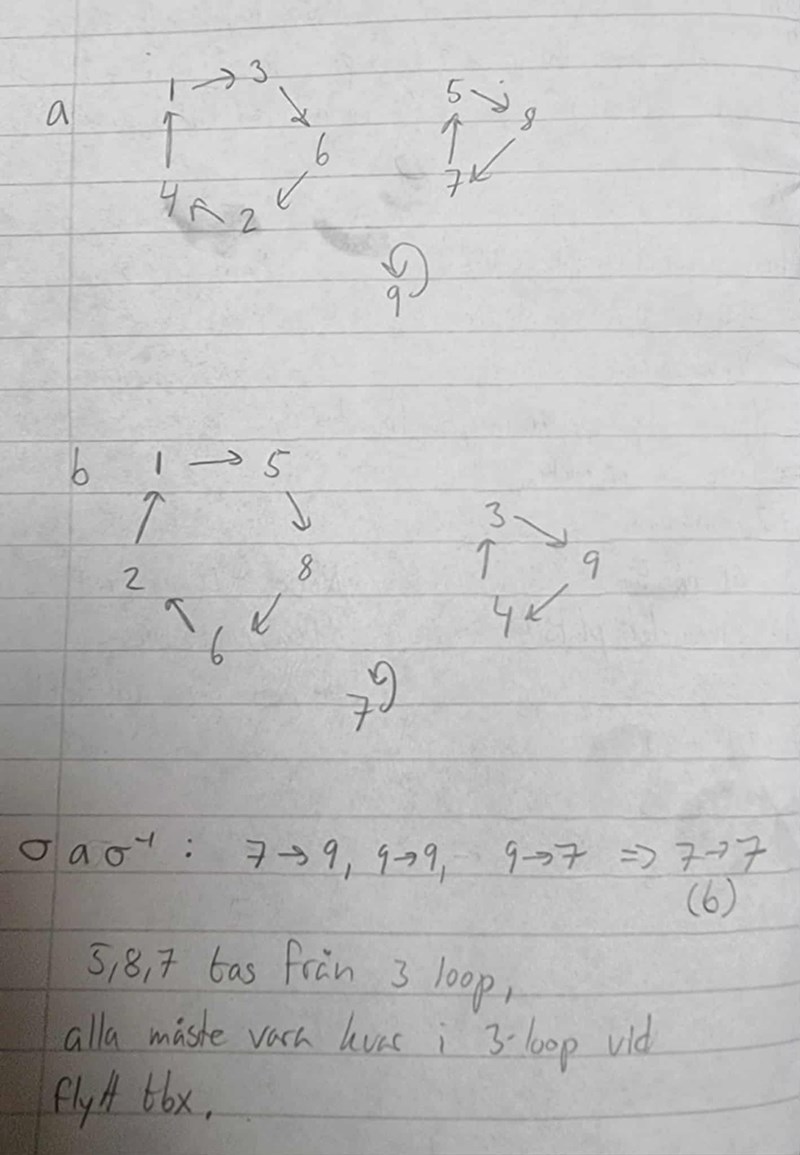 a 1 → 3 5 → 8
↑ ↘ ↑ ↙
6 7
4 ↖ 2 ↙
9
b 1 → 5
↗ ↘ 3 ↘
2 8 ↑ 9
↖ 6 ↙ 4 ↙
7
σ a σ⁻¹ : 7→9, 9→9, 9→7 => 7→7
(b)
5,8,7 tas från 3 loop,
alla måste vara kvar i 3-loop vid
flytt tbx.